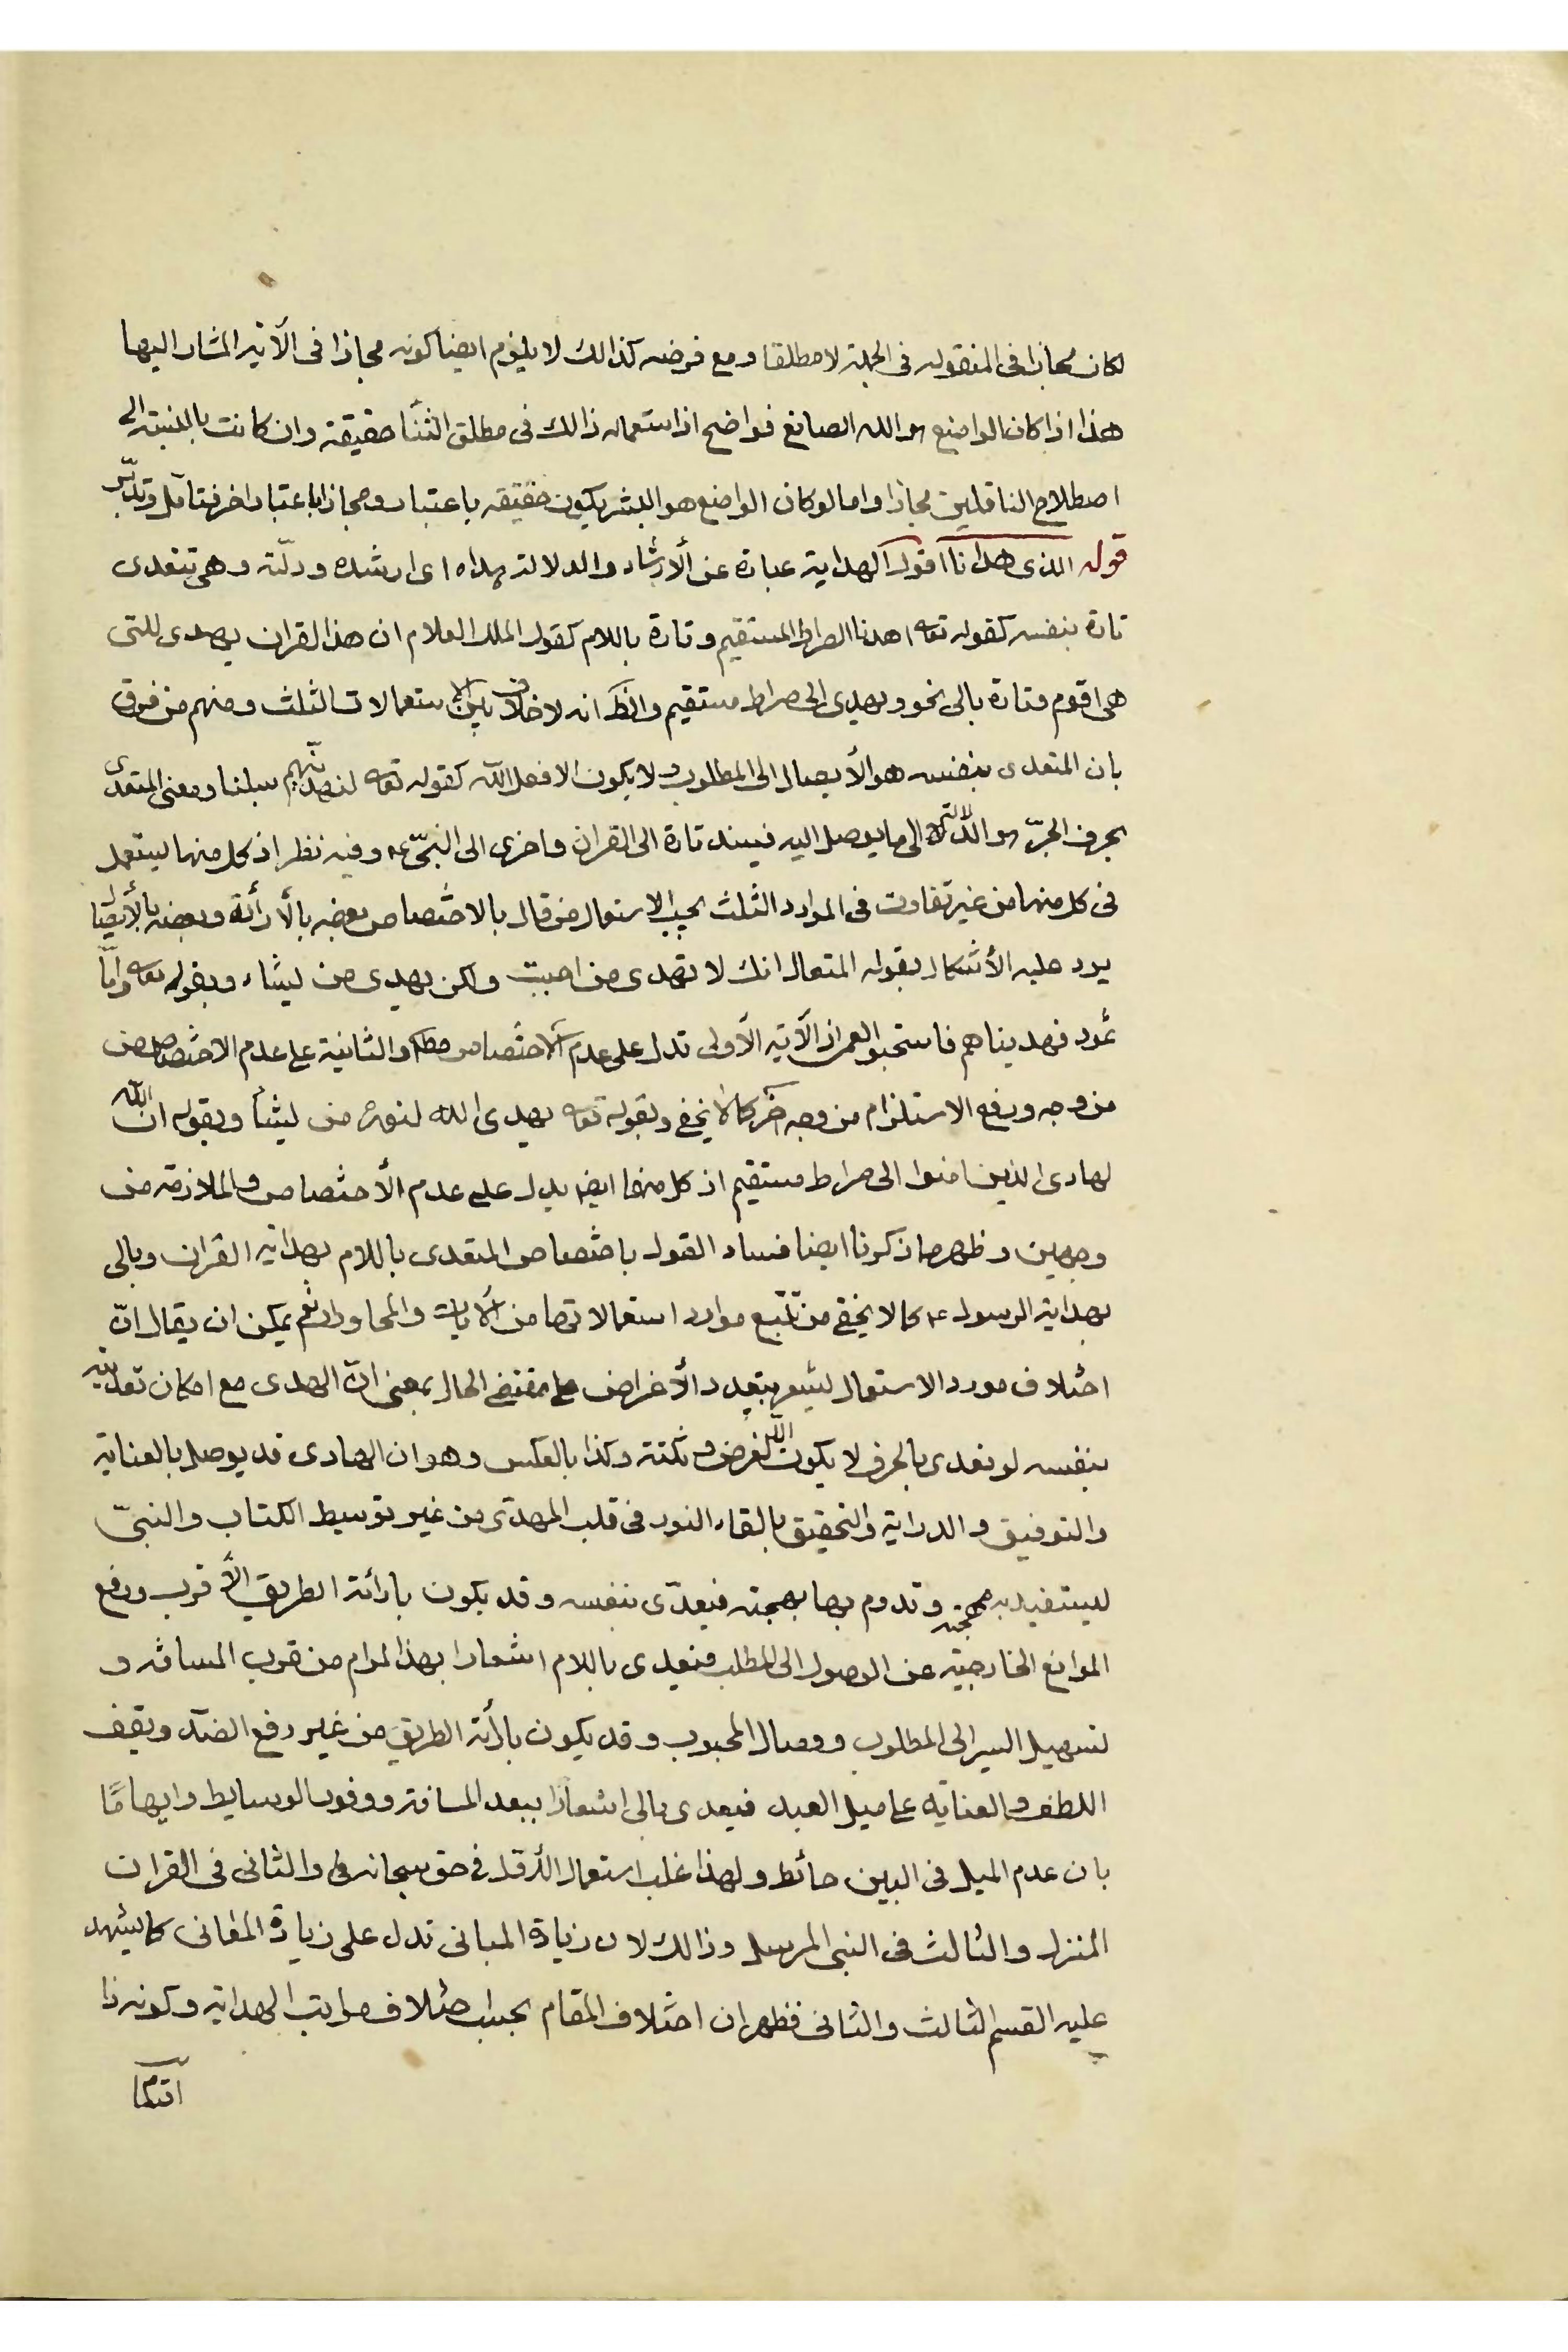 لكان مجازا فى المنقوله فى الجملة لا مطلقا و مع فرضه كذالك لا يلزم ايضا كونه مجازا فى الآية المشار اليها
هذا اذا كان الواضع هو الله الصانع فواضح اذ استعماله ذالك فى مطلق الثنأ حقيقة وان كانت بالنسبة الى
اصطلاح الناقلين مجازا واما لو كان الواضع هو البشر يكون حقيقه باعتبار و مجازا باعتبار اخر فتامّل وتدبّر
قوله الذى هدانا اقول الهداية عبارة عن الأرشاد والدلالة هداه اى ارشده ودلّته وهى تتعدى
تارة بنفسه كقوله تعه اهدنا الصراط المستقيم وتارة باللام كقول الملك العلام ان هذا القران يهدى للتى
هى اقوم وتارة بالى نحو ويهدى الى صراط مستقيم والظ انه لا خلاف بين الاستعمالات الثلث ومنهم من فرق
بان المتعدى بنفسه هو الأيصال الى المطلوب ولا يكون الا فعل الله كقوله تعه لنهدينّهم سبلنا ومعنى المتعدى
بحرف الجرّ هو الدّلالة الى ما يوصل اليه فيسند تارة الى القران واخرى الى النبىّ ء وفيه نظر اذ كل منها يستعمل
فى كل منها من غير تفاوت فى الموارد الثلث بحسب الاستعمال من قال بالاختصاص بعضه بالأرائة وبعضه بالأيصا
يرد عليه الأشكال بقوله المتعال انك لا تهدى من احببت ولكن يهدى من يشاء وبقوله تعه وامّا
ثمود فهديناهم فاستحبوا العمى اذ الآية الأولى تدل على عدم الاختصاص مطلقا والثانية على عدم الاختصاص من
من وجه ورفع الاستلزام من وجه آخر كما لا يخفى وبقوله تعه يهدى الله لنوره من يشأ وبقوله ان الله
لهادى الذين امنوا الى صراط مستقيم اذ كل منهما ايضا يدل على عدم الأختصاص والملازمة من
وجهين وظهر مما ذكرنا ايضا فساد القول باختصاص المتعدى باللام بهداية القران وبالى
بهداية الرسول ء كما لا يخفى من تتّبع موارد استعمالاتها من الآيات والمحاورات نعم يمكن ان يقال انّ
اختلاف مورد الاستعمال ليشعر بتعدد الأغراض على مقتضى الحال بمعنى انّ الهدى مع امكان تعديته
بنفسه لو تعدى بالحرف لا يكون الّا لغرض و نكتة وكذا بالعكس وهو ان الهادى قد يوصل بالعناية
والتوفيق والدراية والتحقيق بالقاء النور فى قلب المهدىّ من غير توسيط الكتاب والنبىّ
ليستفيد به مهجته وتدوم بها بهجته فيعدّى بنفسه وقد يكون بارائة الطريق الأقرب ورفع
الموانع الخارجيّه عن الوصول الى المطلب فيعدى باللام اشعارا بهذا المرام من قرب المسافه و
تسهيل السير الى المطلوب ووصال المحبوب وقد يكون بارأئة الطريق من غير رفع الضدّ ويقف
اللطف والعنايه على ميل العبد فيعدى بالى اشعارًا ببعد المسافة ووفور الوسايط وايهامًا
بان عدم الميل فى البين حائط ولهذا غلب استعمال الأوّل فى حق سبحانه والثانى فى القران
المنزل والثالث فى النبى المرسل وذالك لان زيادة المبانى تدل على زيادة المعانى كما يشهد
عليه القسم الثالث والثانى فظهر ان اختلاف المقام بحسب اختلاف مراتب الهداية وكونه ذا